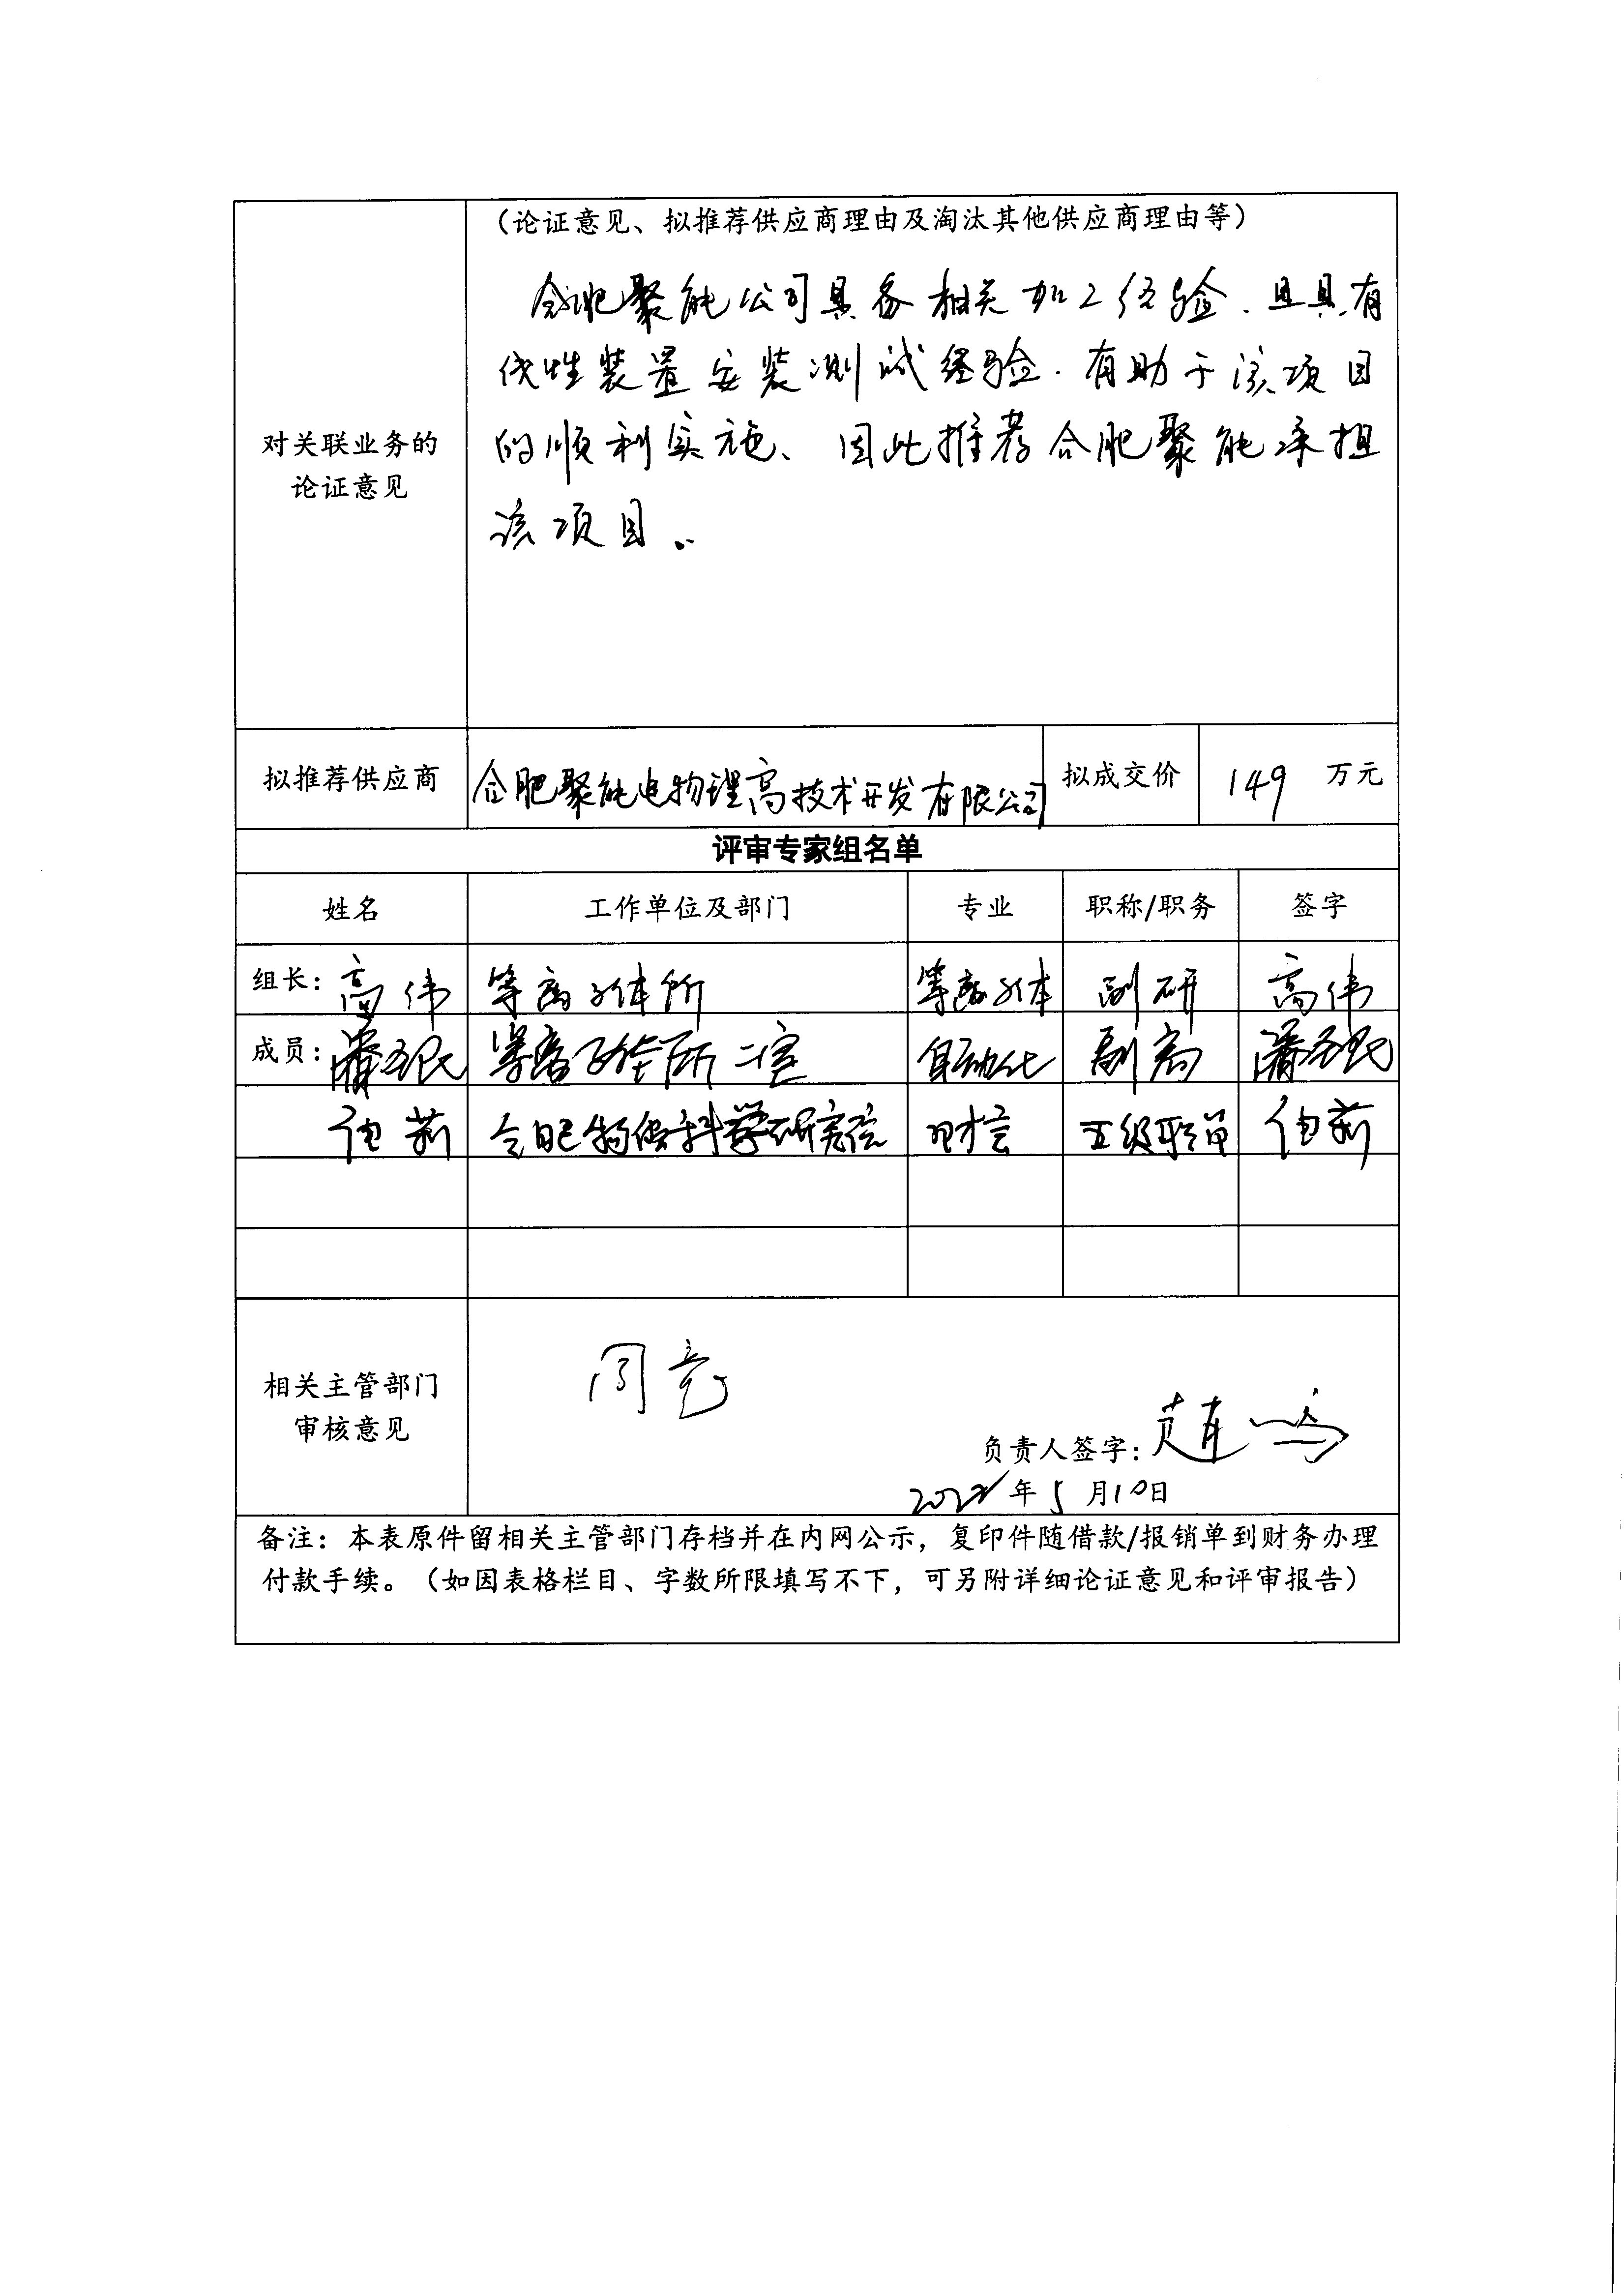 (论证意见、拟推荐供应商理由及淘汰其他供应商理由等)
合肥聚能公司具备相关加工经验、且具有
线性装置安装测试经验.有助于该项目
的顺利实施、因此推荐合肥聚能承担
该项目。
对关联业务的
论证意见
拟推荐供应商 合肥聚能电物理高技术开发有限公司 拟成交价 149 万元
评审专家组名单
姓名 工作单位及部门 专业 职称/职务 签字
组长:高伟 等离子体所 等离子体 副研 高伟
成员: 等离子体所二室 自动化 副高
合肥物质科学研究院 财会 五级职员
同意
相关主管部门
审核意见
负责人签字:
年5月10日
备注:本表原件留相关主管部门存档并在内网公示,复印件随借款/报销单到财务办理
付款手续。(如因表格栏目、字数所限填写不下,可另附详细论证意见和评审报告)